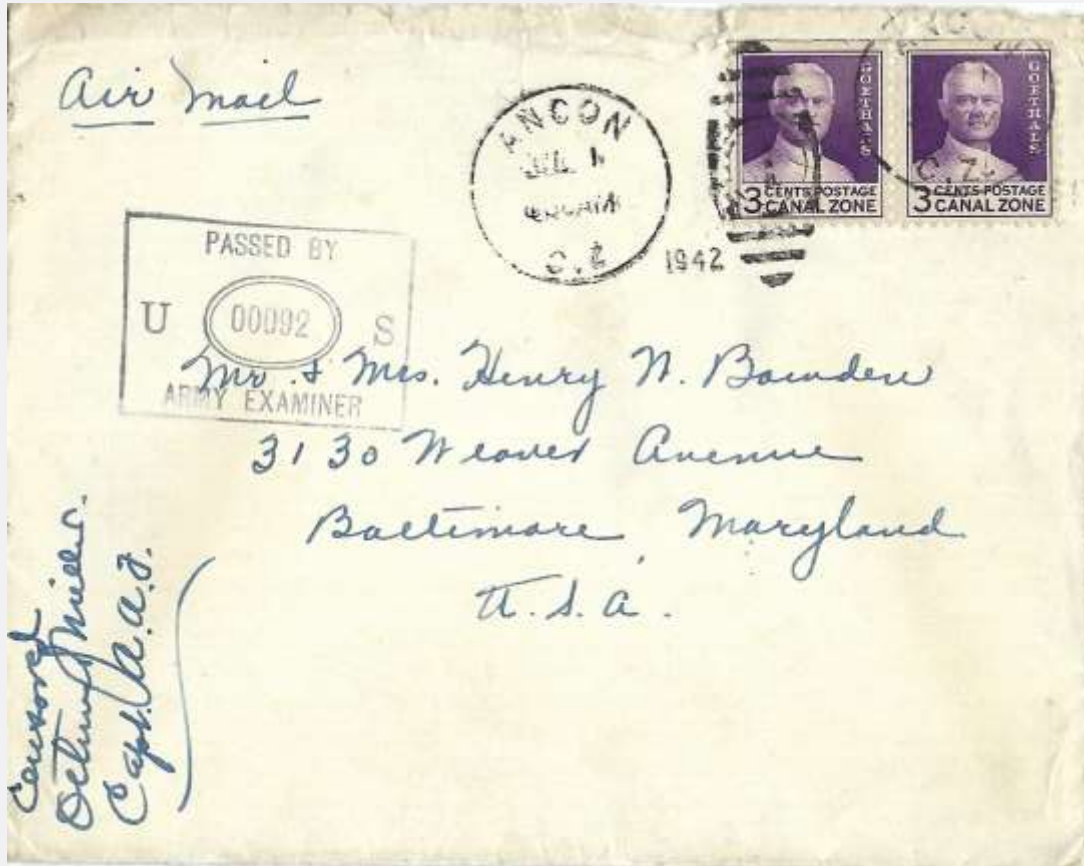 Air Mail
ANCON
JUL 1
C.Z.
1942
GOETHALS
3 CENTS POSTAGE
CANAL ZONE
GOETHALS
3 CENTS POSTAGE
CANAL ZONE
C.Z.
PASSED BY
U 00092 S
ARMY EXAMINER
Mr. & Mrs. Henry N. Bowden
3130 Weaver Avenue
Baltimore, Maryland
U.S.A.
Censored
Miller
Capt. A.A.F.